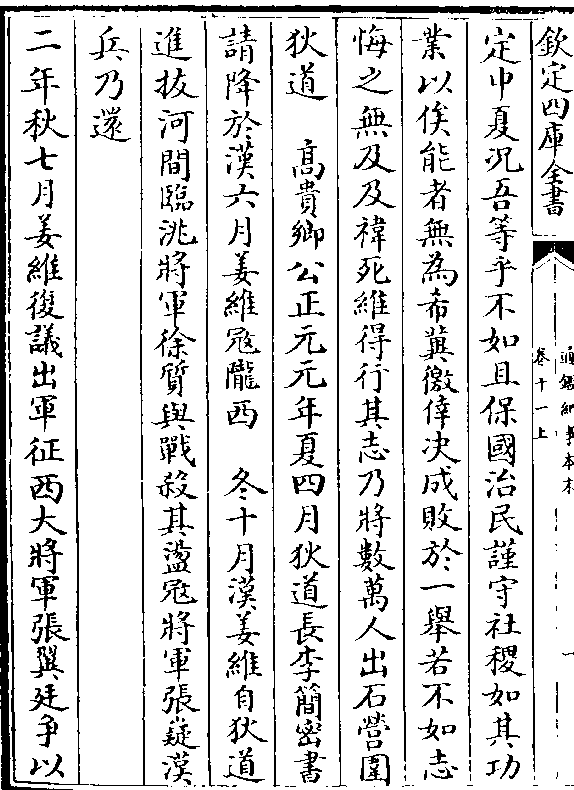 欽定四庫全書
通鑑紀事本末
卷十一上
定中夏況吾等乎不如且保國治民謹守社稷如其功
業以俟能者無為希冀徼倖决成敗於一舉若不如志
悔之無及及禕死維得行其志乃將數萬人出石營圍
狄道　高貴鄉公正元元年夏四月狄道長李簡密書
請降於漢六月姜維寇隴西　冬十月漢姜維自狄道
進拔河間臨洮將軍徐質與戰殺其盪寇將軍張嶷漢
兵乃還
二年秋七月姜維復議出軍征西大將軍張翼廷争以